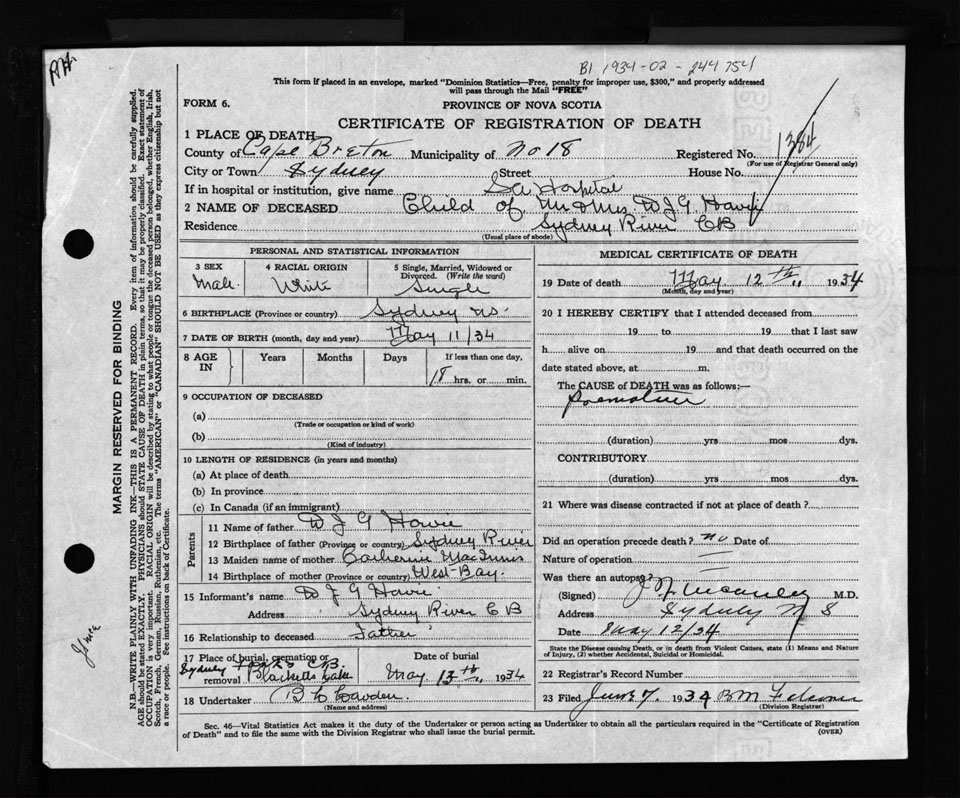 PH.
B1 1934-02-244754
This form if placed in an envelope, marked "Dominion Statistics—Free, penalty for improper use, $300," and properly addressed
will pass through the Mail "FREE"
FORM 6.
PROVINCE OF NOVA SCOTIA
CERTIFICATE OF REGISTRATION OF DEATH
1 PLACE OF DEATH
County of Cape Breton Municipality of No 18 Registered No. 1384
(For use of Registrar General only)
City or Town Sydney Street House No.
If in hospital or institution, give name SA Hospital
2 NAME OF DECEASED Child of Mr & Mrs D J G Howie
Residence Sydney River CB
(Usual place of abode)
PERSONAL AND STATISTICAL INFORMATION
3 SEX
Male
4 RACIAL ORIGIN
White
5 Single, Married, Widowed or
Divorced. (Write the word)
Single
6 BIRTHPLACE (Province or country) Sydney NS.
7 DATE OF BIRTH (month, day and year) May 11/34
8 AGE
IN
Years Months Days If less than one day,
18 hrs. or min.
9 OCCUPATION OF DECEASED
(a)
(Trade or occupation or kind of work)
(b)
(Kind of industry)
10 LENGTH OF RESIDENCE (in years and months)
(a) At place of death
(b) In province
(c) In Canada (if an immigrant)
Parents
11 Name of father D J G Howie
12 Birthplace of father (Province or country) Sydney River
13 Maiden name of mother Catherine MacInnis
14 Birthplace of mother (Province or country) West-Bay.
15 Informant's name D J G Howie
Address Sydney River CB
16 Relationship to deceased Father
17 Place of burial, cremation or
removal Sydney CB.
Blacketts Lake
Date of burial
May 13th, 1934
18 Undertaker
(Name and address)
MEDICAL CERTIFICATE OF DEATH
19 Date of death May 12th, 1934
(Month, day and year)
20 I HEREBY CERTIFY that I attended deceased from
19 to 19 that I last saw
h alive on 19 and that death occurred on the
date stated above, at m.
The CAUSE of DEATH was as follows:—
Premature
(duration) yrs mos dys.
CONTRIBUTORY
(duration) yrs mos dys.
21 Where was disease contracted if not at place of death?
Did an operation precede death? no Date of
Nature of operation
Was there an autopsy?
(Signed) M.D.
Address Sydney N S
Date May 12/34
State the Disease causing Death, or in death from Violent Causes, state (1) Means and Nature
of Injury, (2) whether Accidental, Suicidal or Homicidal.
22 Registrar's Record Number
23 Filed June 7, 1934
(Division Registrar)
Sec. 46—Vital Statistics Act makes it the duty of the Undertaker or person acting as Undertaker to obtain all the particulars required in the "Certificate of Registration
of Death" and to file the same with the Division Registrar who shall issue the burial permit. (OVER)
MARGIN RESERVED FOR BINDING
N.B.—WRITE PLAINLY WITH UNFADING INK—THIS IS A PERMANENT RECORD. Every item of information should be carefully supplied.
AGE should be stated EXACTLY. PHYSICIANS should STATE CAUSE OF DEATH in plain terms, so that it may be properly classified. Exact statement of
OCCUPATION is very important. RACIAL ORIGIN will be described by stating to what people or tongue the deceased person belonged, whether English, Irish,
Scotch, French, German, Russian, Ruthenian, etc. The terms "AMERICAN" or "CANADIAN" SHOULD NOT BE USED as they express citizenship but not
a race or people. See instructions on back of Certificate.